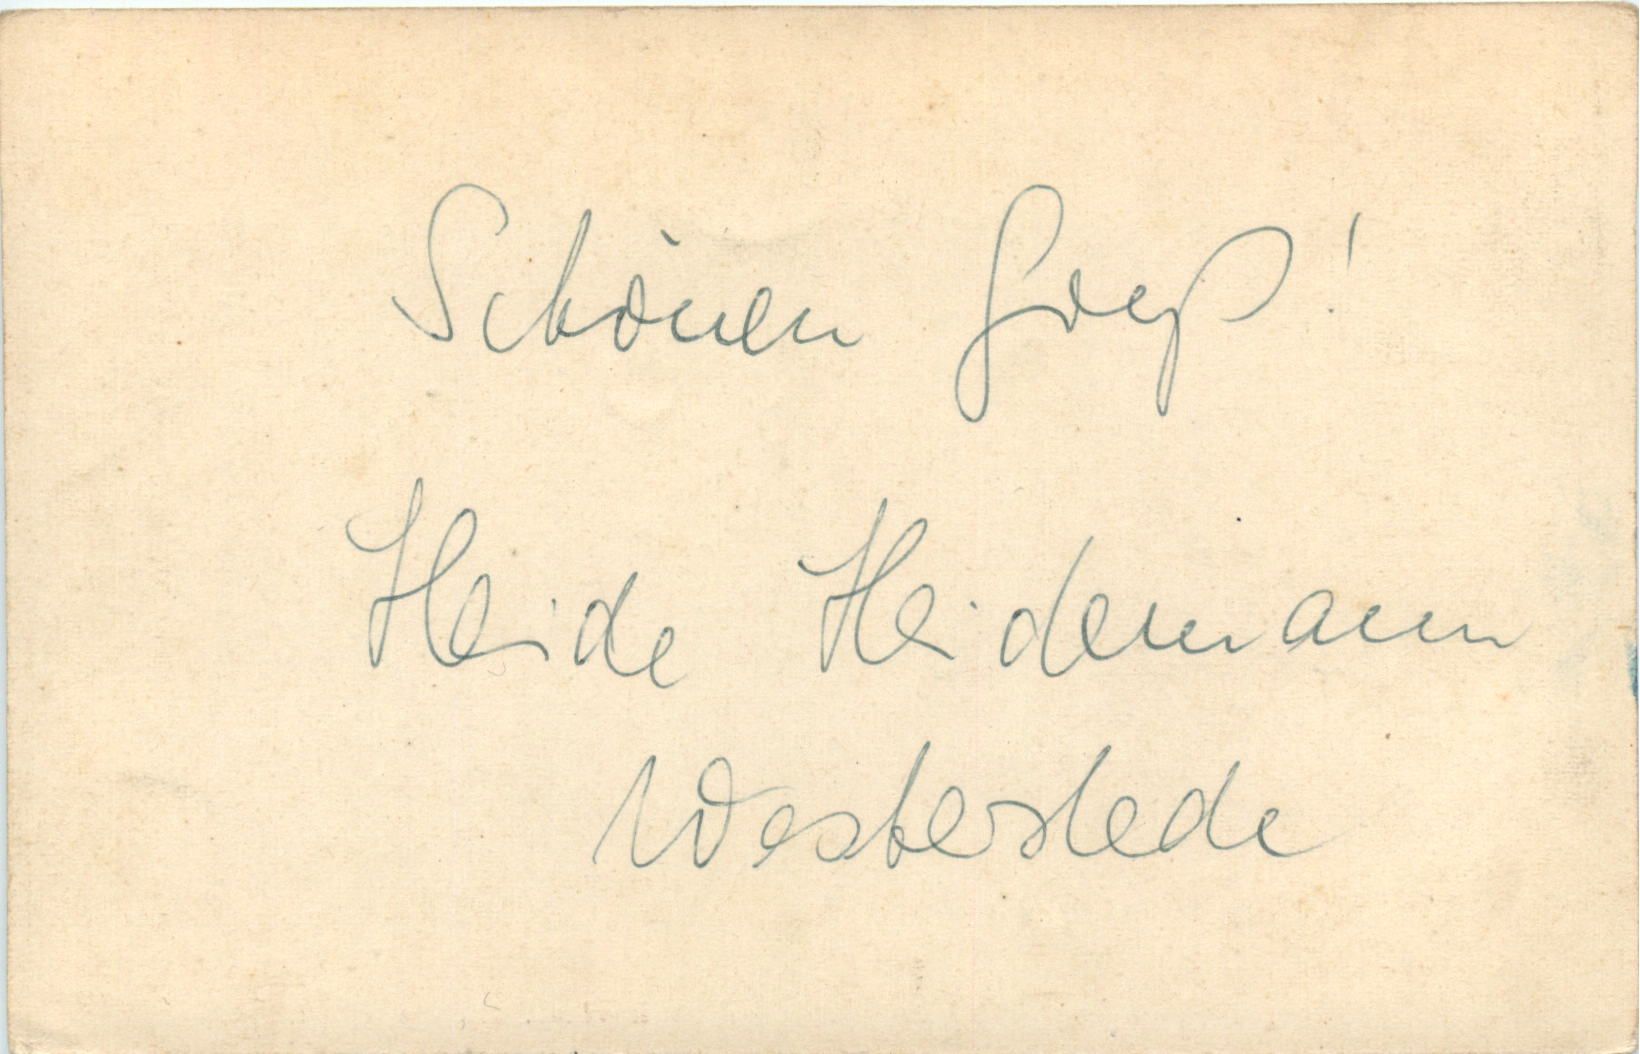 Schönen Gruß!
Heide Heidemann
Westerstede